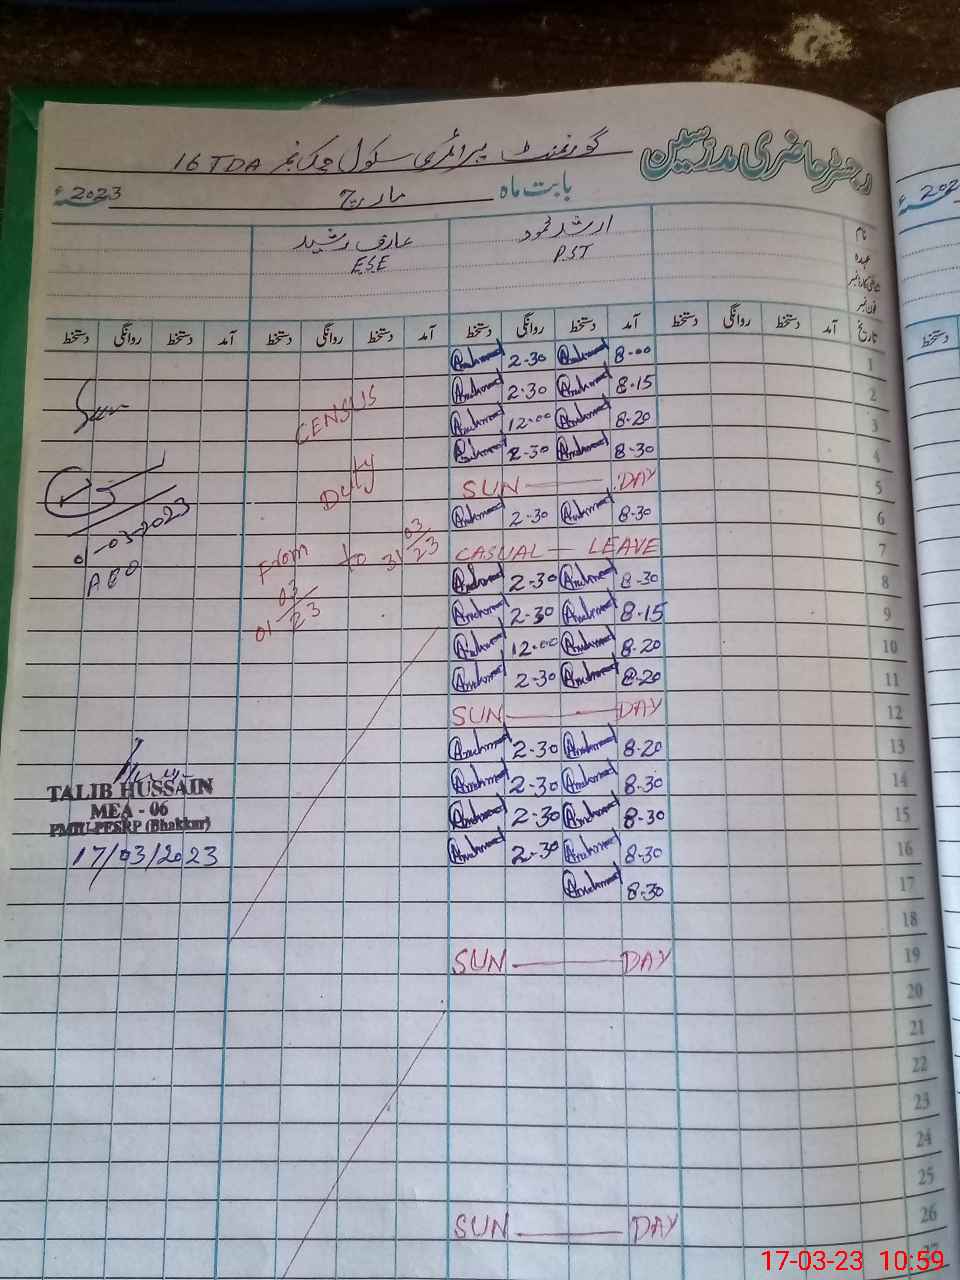 رجسٹر حاضری مدرسین
گورنمنٹ پرائمری سکول چک نمبر 16 TDA
بابت ماہ مارچ 2023ء
نام ارشد محمود عارف رشید
عہدہ PST ESE
شناختی کارڈ نمبر
فون نمبر
تاریخ آمد دستخط روانگی دستخط آمد دستخط روانگی دستخط آمد دستخط روانگی دستخط آمد دستخط روانگی دستخط
1 8-00 2-30
2 8-15 2-30
3 8-20 12-00
4 8-30 2-30
5 SUN DAY
6 8-30 2-30
7 CASUAL - LEAVE
8 8-30 2-30
9 8-15 2-30
10 8-20 12-00
11 8-20 2-30
12 SUN DAY
13 8-20 2-30
14 8-30 2-30
15 8-30 2-30
16 8-30 2-30
17 8-30
18
19 SUN DAY
20
21
22
23
24
25
26 SUN DAY
27
CENSUS
Duty
From to 31 03/23
01 03/23
-03-2023
AEO
TALIB HUSSAIN
MEA - 06
PMIU-PESRP (Bhakkar)
17/03/2023
202
دستخط
17-03-23 10:59